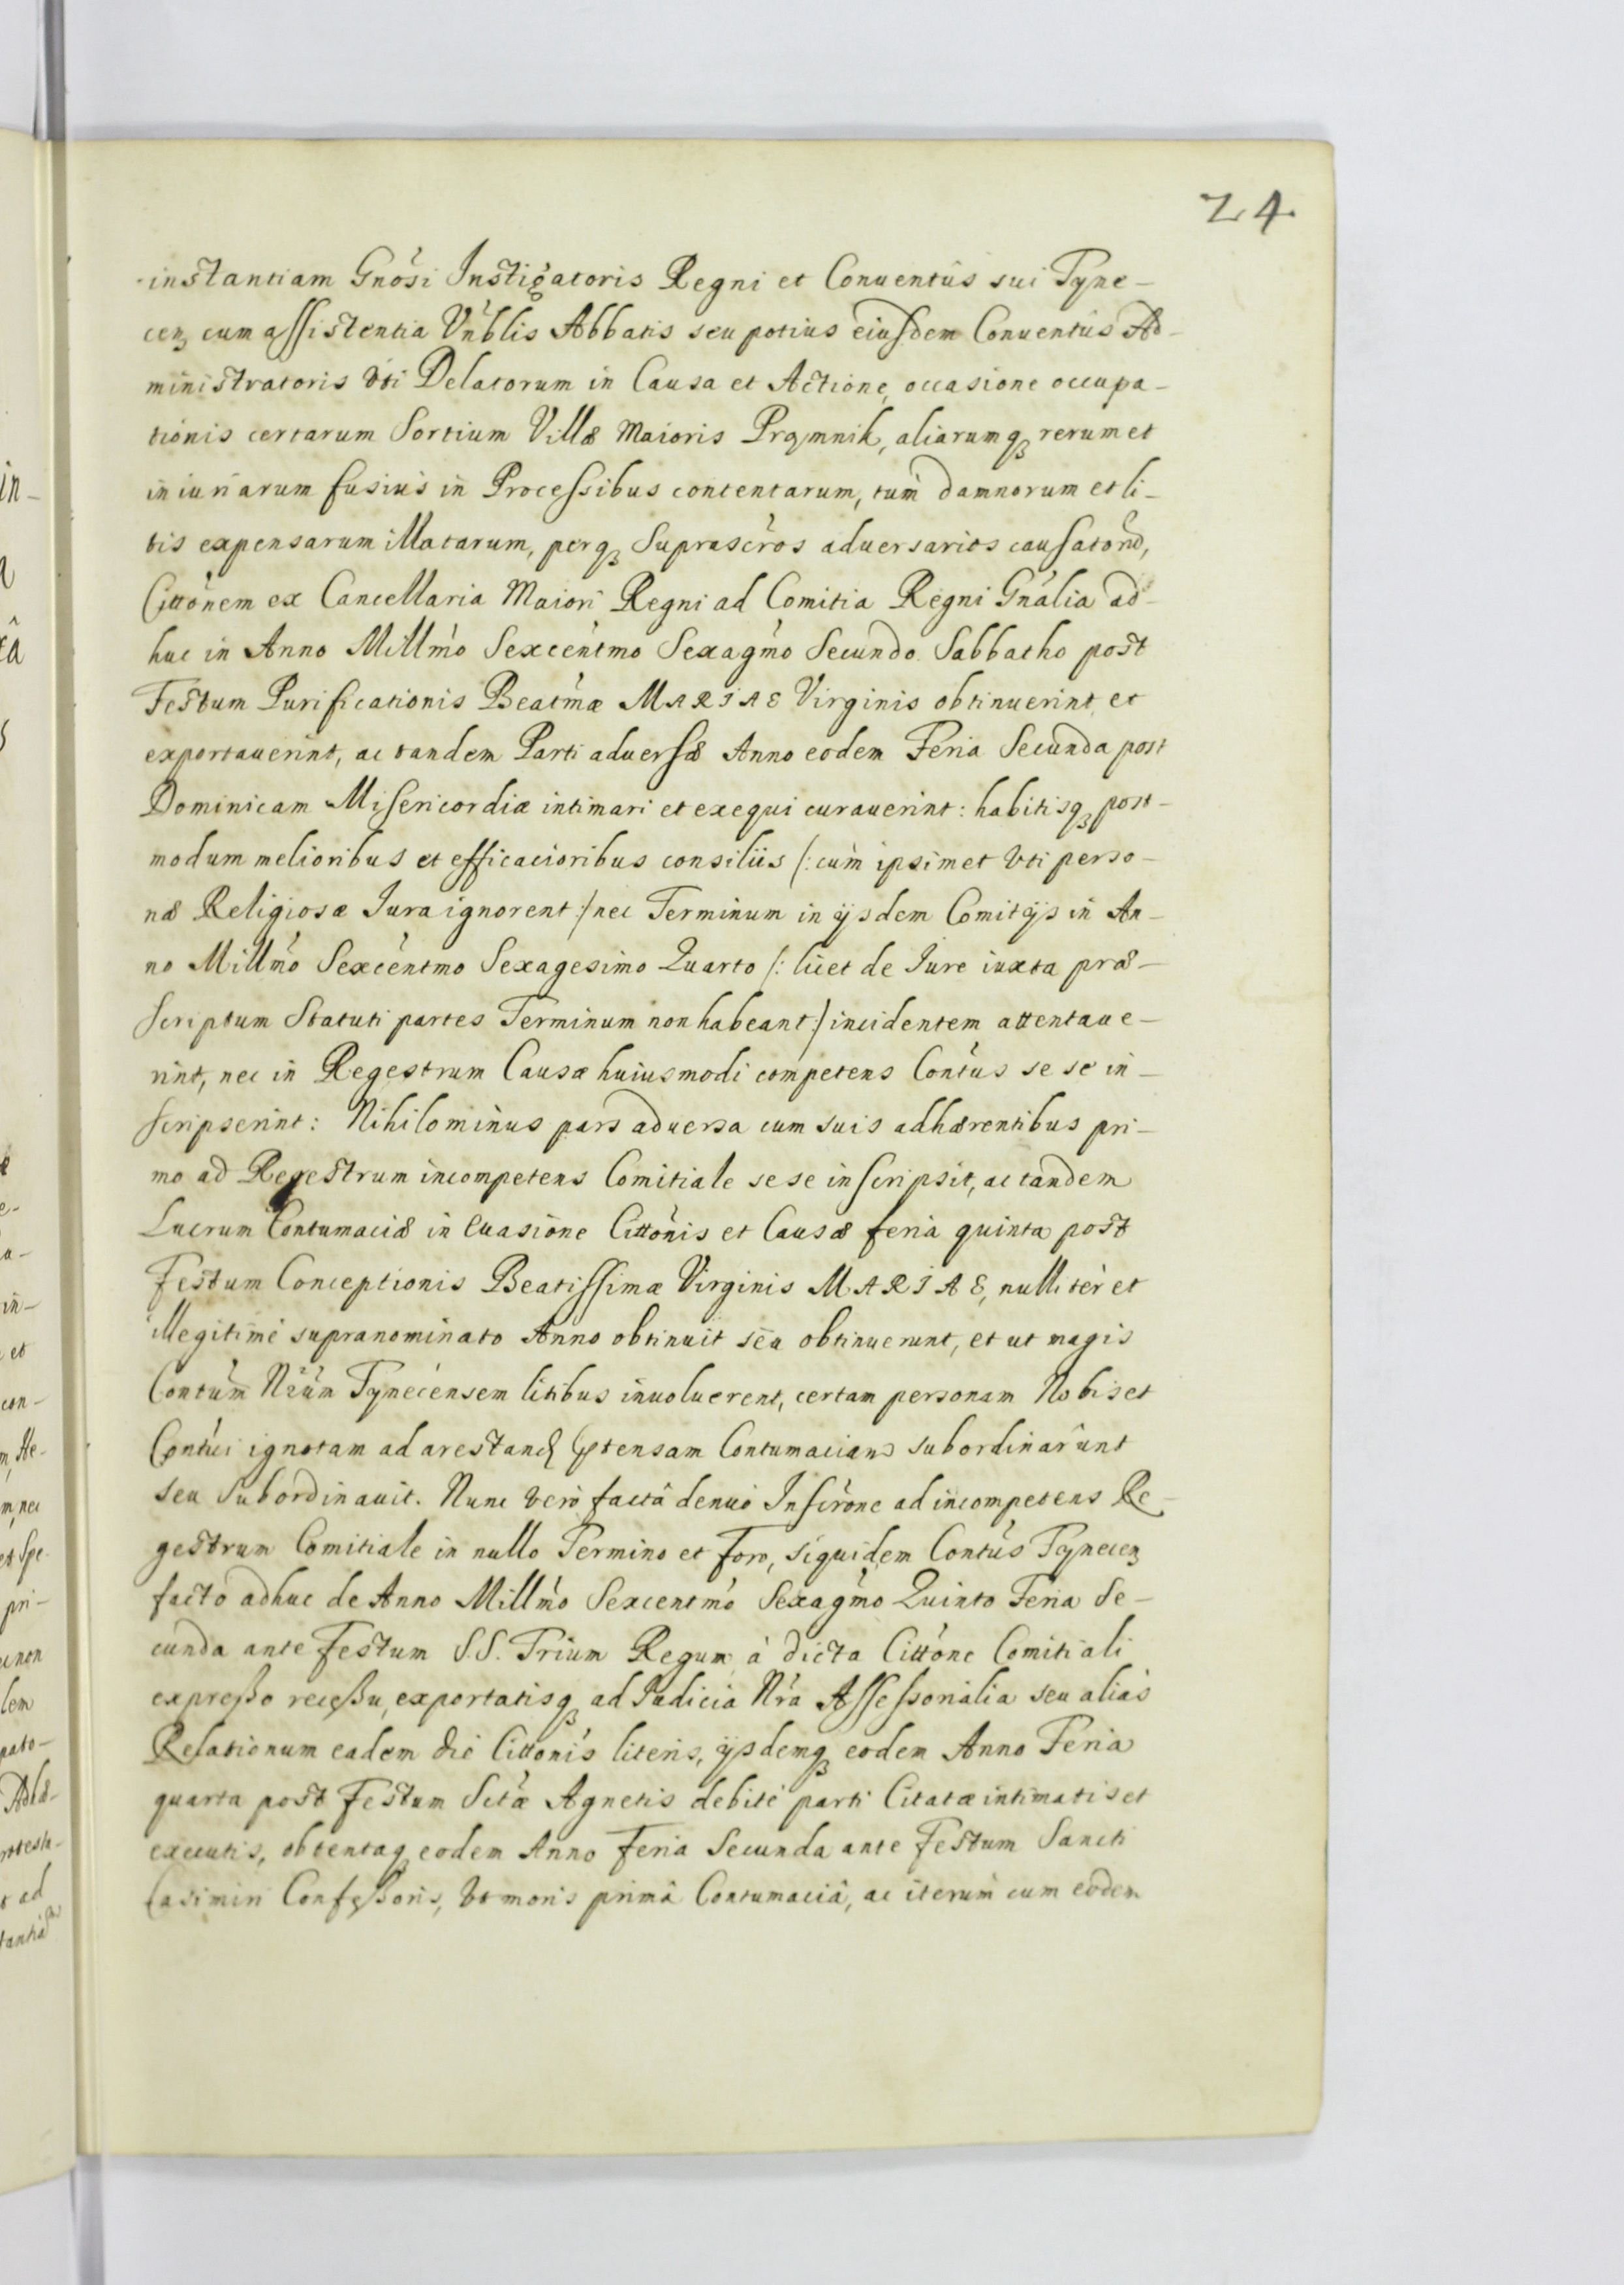 24.
instantiam Gnosi Instigatoris Regni et Conuentûs sui Tyne-
cen̄ cum assistentia Vnblis Abbatis seu potius eiusdem Conuentûs Ad-
ministratoris vti Delatorum in Causa et Actione, occasione occupa-
tionis certarum Sortium Villæ Maioris Prąmnik, aliarumq, rerum et
iniuriarum fusius in Processibus contentarum, tum damnorum et li-
tis expensarum illatarum, perq, Suprascros aduersarios causatorū,
Cittonem ex Cancellaria Maiori Regni ad Comitia Regni Gnalia ad-
huc in Anno Millmo Sexcentmo Sexagmo Secundo Sabbatho post
Festum Purificationis Beatmæ MARIAE Virginis obtinuerint et
exportauerint, ac tandem Parti aduersæ Anno eodem Feria Secunda post
Dominicam Misericordiæ intimari et exequi curauerint: habitisq, post-
modum melioribus et efficacioribus consiliis /: cum ipsimet vti perso-
næ Religiosæ Iura ignorent :/ nec Terminum in ijsdem Comitijs in An-
no Millmo Sexcentmo Sexagesimo Quarto /: licet de Iure iuxta præ-
scriptum Statuti partes Terminum non habeant :/ incidentem attentaue-
rint, nec in Regestrum Causæ huiusmodi competens Contus se se in-
scripserint: Nihilominus pars aduersa cum suis adhærentibus pri-
mo ad Regestrum incompetens Comitiale se se inscripsit, ac tandem
Lucrum Contumaciæ in Euasione Cittonis et Causæ feria quinta post
Festum Conceptionis Beatissimæ Virginis MARIAE, nulliter et
illegitime supranominato Anno obtinuit seu obtinuerunt, et ut magis
Contum Nrum Tynecensem litibus inuoluerent, certam personam Nobis et
Contui ignotam ad arestand ptensam Contumaciam subordinarunt
seu subordinauit. Nunc vero factâ denuo Inscrone ad incompetens Re-
gestrum Comitiale in nullo Termino et Foro, siquidem Contus Tynecen̄
facto adhuc de Anno Millmo Sexcentmo Sexagmo Quinto Feria Se-
cunda ante Festum S.S. Trium Regum à dicta Cittone Comitiali
expresso recessu, exportatisq, ad Iudicia Nra Assessorialia seu alias
Relationum eadem die Cittonis literis, ijsdemq, eodem Anno Feria
quarta post Festum Sctæ Agnetis debite parti Citatæ intimatis et
executis, obtentaq, eodem Anno Feria Secunda ante Festum Sancti
Casimiri Confessoris, vt moris primâ Contumaciâ, ac iterum cum eodem